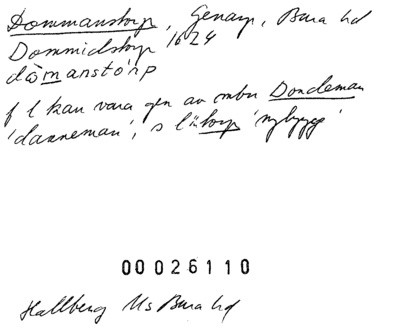 Dommanstorp, Genarp, Bara hd
Dommidstorp 1624
dåmanstórp
f l kan vara gen av mbn Dondeman
'danneman', s l torp 'nybygge'
00026110
Hallberg Ms Bara hd